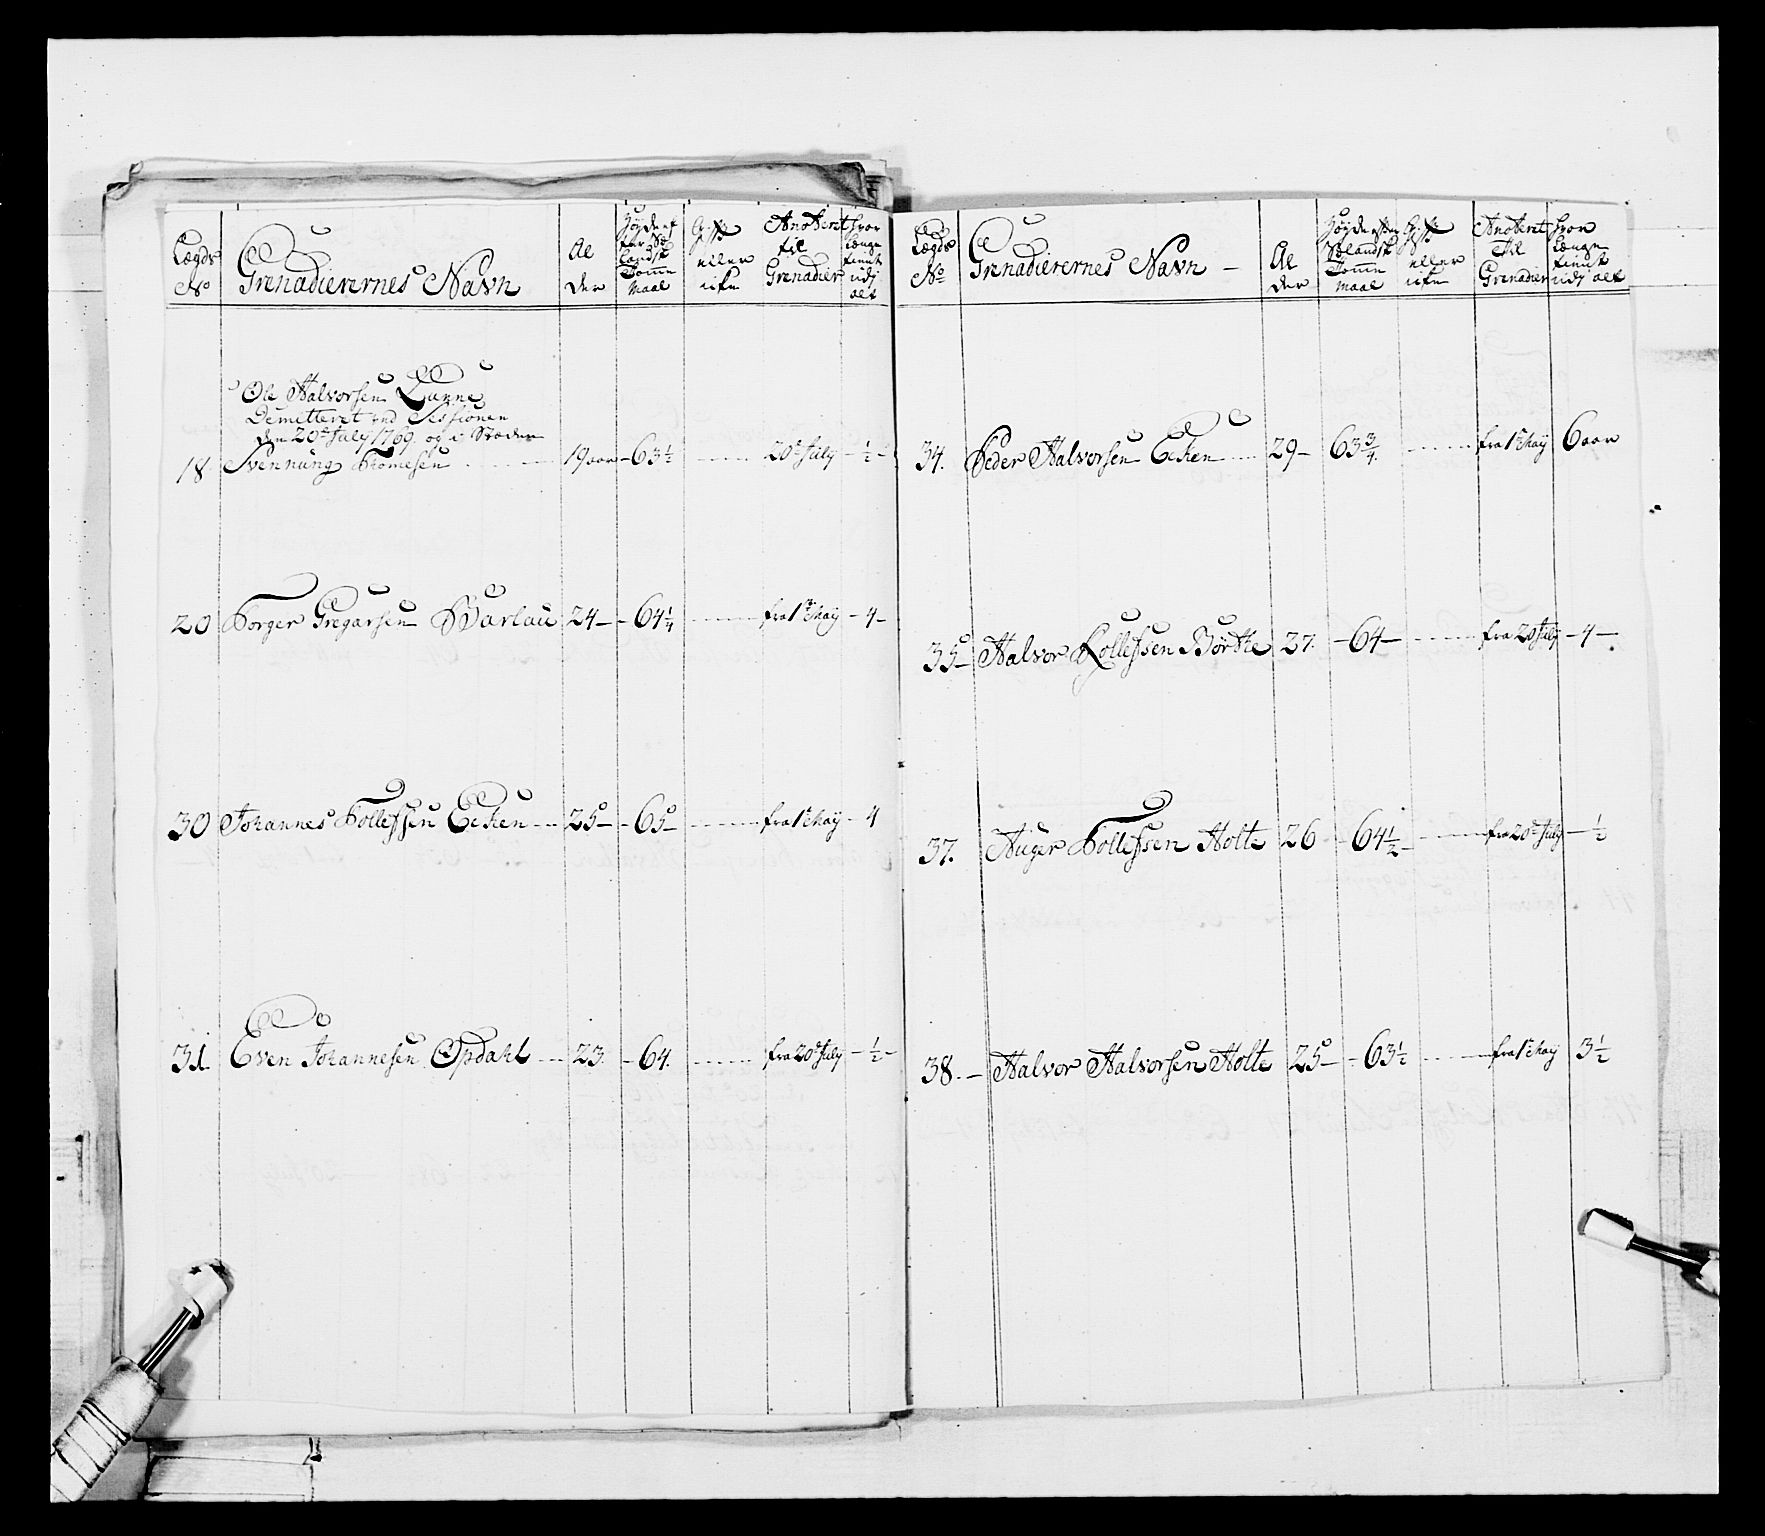 Lægds No
Grenadierernes Navn
Al der
Høyde ef ter Sæ landsk Tomme Maal
Gift eller icke
Anoteret til Grenadier
hvor Længe tient udj alt
Ole Halvorsen
Demitteret ved Sessionen
den 20de July 1769. og i Stæden
18 Svennung Tromesen 19 aar 63½ 20de July ½
20 Torger Gregarsen 24 64¼ fra 1te May 4
30 Johannes Tollefsen Ecken 25 65 fra 1te May 4
31. Even Johannesen Opdahl 23 64. fra 20de July ½
Lægds No
Grenadierernes Navn
Al der
Høyde efter Sælandsk Tomme maal
Gift eller icke
Anoteret Til Grenadier
hvor Længe tient udj alt
34. Peder Halvorsen Ecken 29 63¾. fra 1te May 6 aar
35 Halvor Rollefsen Børthe 27. 64 fra 20 July 4
37. Auger Tollefsen Holte 26 64½ fra 20de July ½
38. Halvor Halvorsen Holte 25 63½ fra 1te May 3½